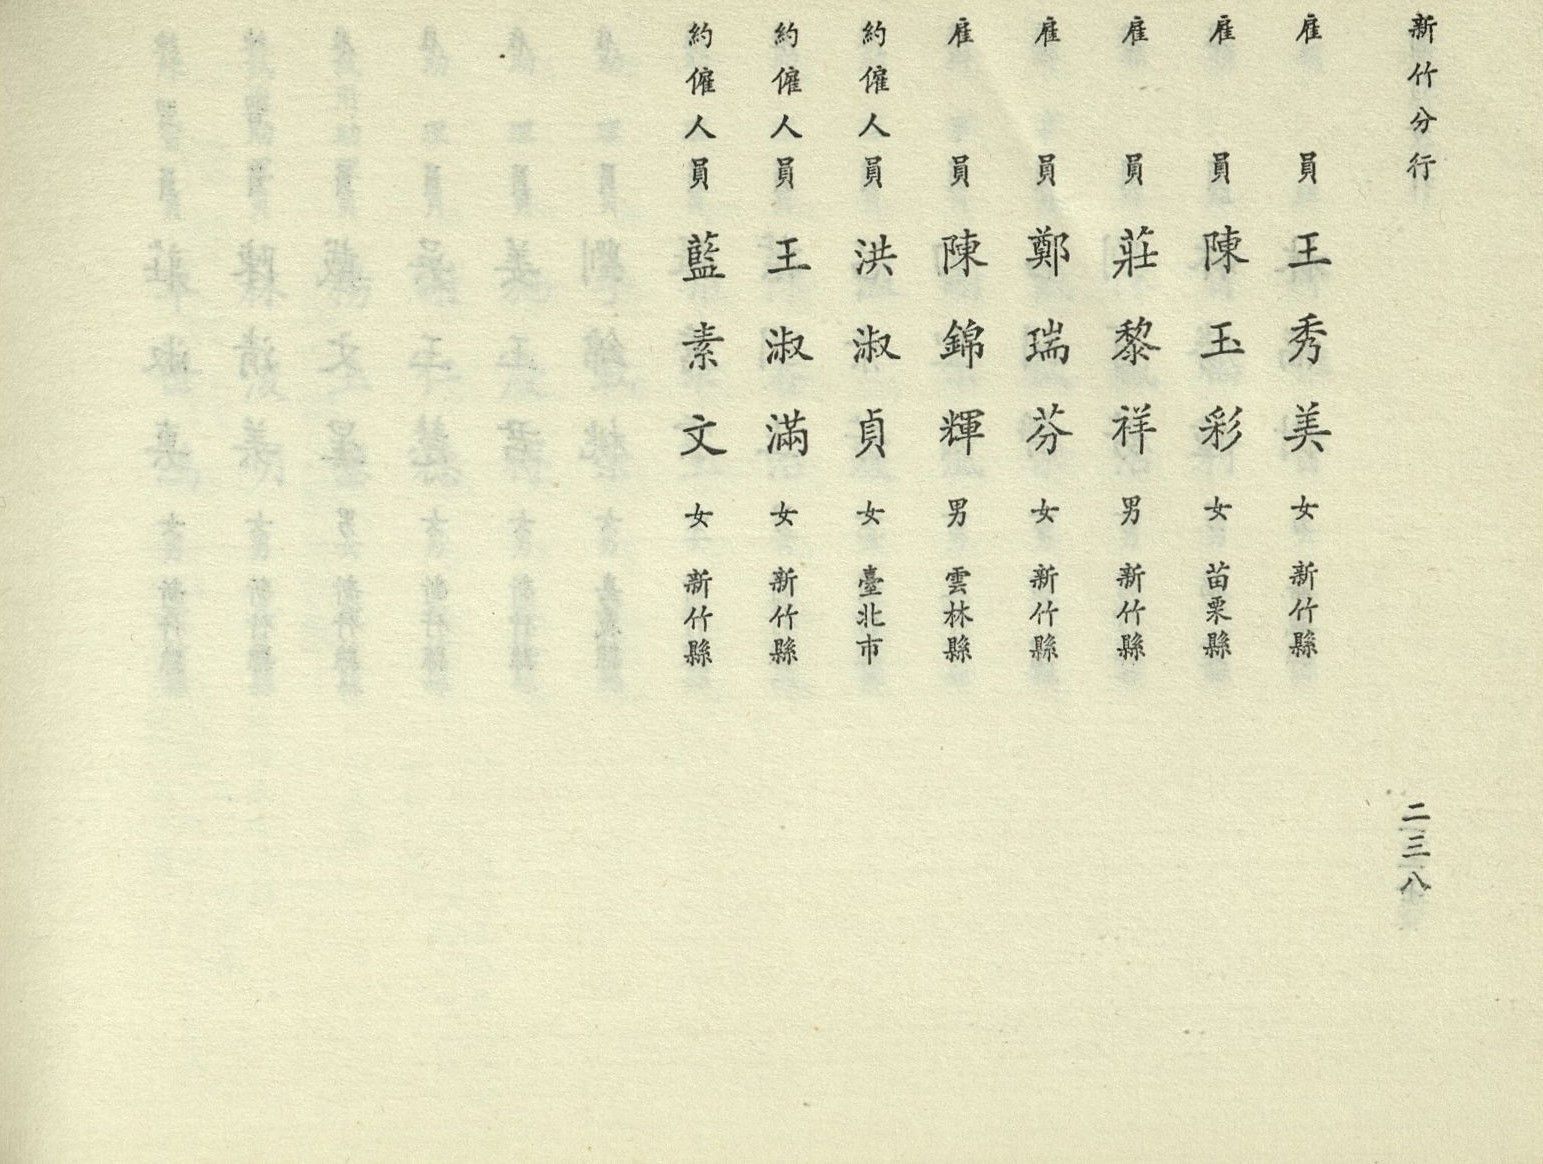 新竹分行
雇員 王秀美 女 新竹縣
雇員 陳玉彩 女 苗栗縣
雇員 莊黎祥 男 新竹縣
雇員 鄭瑞芬 女 新竹縣
雇員 陳錦輝 男 雲林縣
約僱人員 洪淑貞 女 臺北市
約僱人員 王淑滿 女 新竹縣
約僱人員 藍素文 女 新竹縣
二三八